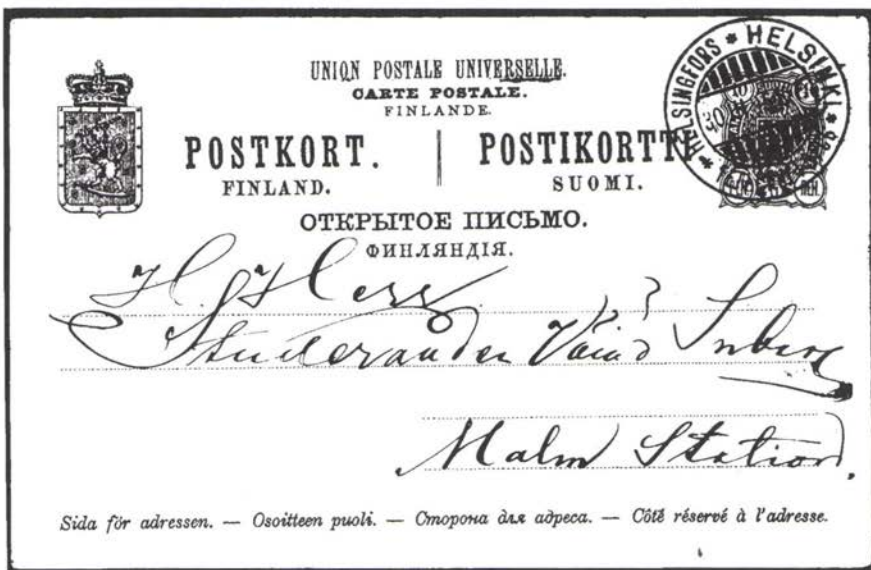 UNION POSTALE UNIVERSELLE.
CARTE POSTALE.
FINLANDE.
POSTKORT. POSTIKORTTI
FINLAND. SUOMI.
ОТКРЫТОЕ ПИСЬМО.
ФИНЛЯНДІЯ.
* HELSINGFORS * HELSINKI *
10 10
PEN.
H. Herr
Studeranden Väinö
Malm Station.
Sida för adressen. — Osoitteen puoli. — Сторона для адреса. — Côté réservé à l'adresse.